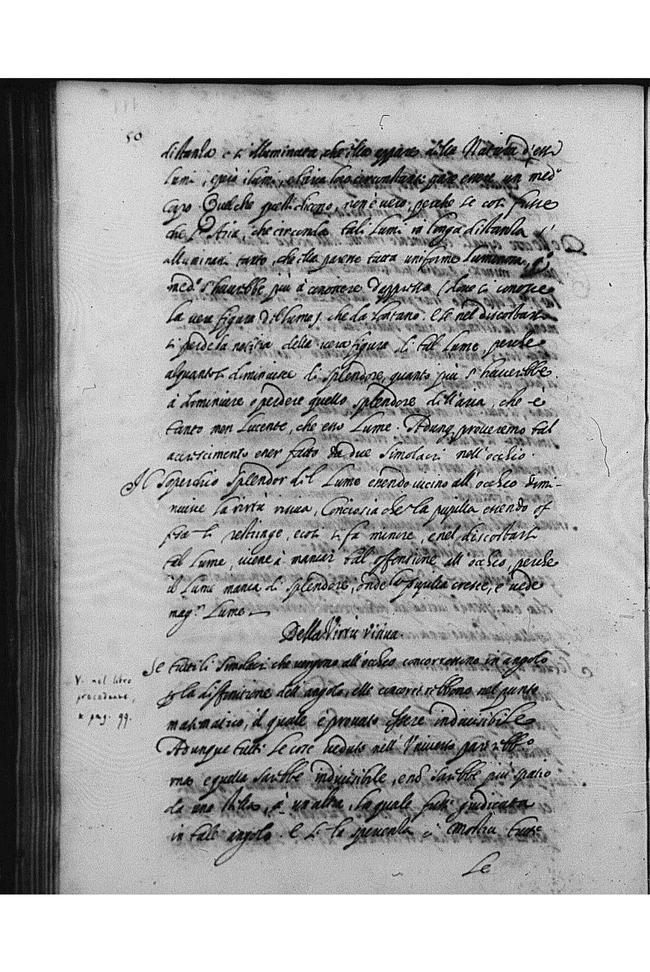 50
distanza s'è illuminata, che ella appare della Natura d'essi
lumi, e più i lumi, e l'aria loro circonstante pare essere un med.º
corpo. Quel che questi dicono, non è vero, perche se cosi fusse
che l'Aria, che circonda tali Lumi in longa distanza s'
alluminassi tanto, che ella paresse tutta uniforme Luminosa,
med.º s'haverebbe più à conoscere d'appresso (dove si conosce
la vera figura di Lume) che da lontano. E se nel discostarsi
si perde la notizia della vera figura di tal Lume perche
alquanto diminuisce di splendore, quanto più s'haverebbe
à diminuire e perdere quello splendore dell'aria, che è
tanto men Lucente, che esso Lume. Adunq. proveremo tal
accrescimento esser fatto da due Simolacri nell'occhio.
Il Soperchio splendor del Lume essendo vicino all'occhio dimi-
nuisce la virtù visiva, Conciosia che la pupilla essendo of
fesa si restringe, e cosi si fa minore, e nel discostarsi
tal Lume, viene à mancar tal offensione all'occhio, perche
il Lume manca di splendore, onde la pupilla cresce, e vede
magr. Lume
Della Virtù Visiva.
Se tutti li Simolacri che vengono all'occhio concorressino in angolo
p la diffinitione dell'angolo, elle concorrerebbono nel punto
matematico, il quale è provato essere indivisibile
Adunque tutte le cose vedute nell'Universo parrebbo
no una, e quella sarebbe indivisibile, e nõ sarebbe più spatio
da una stella, à un'altra, la quale fussi giudicata
in tale angolo. E se la sperienza ci mostra tutte
le
V. nel libro
precedente,
a pag. 99.